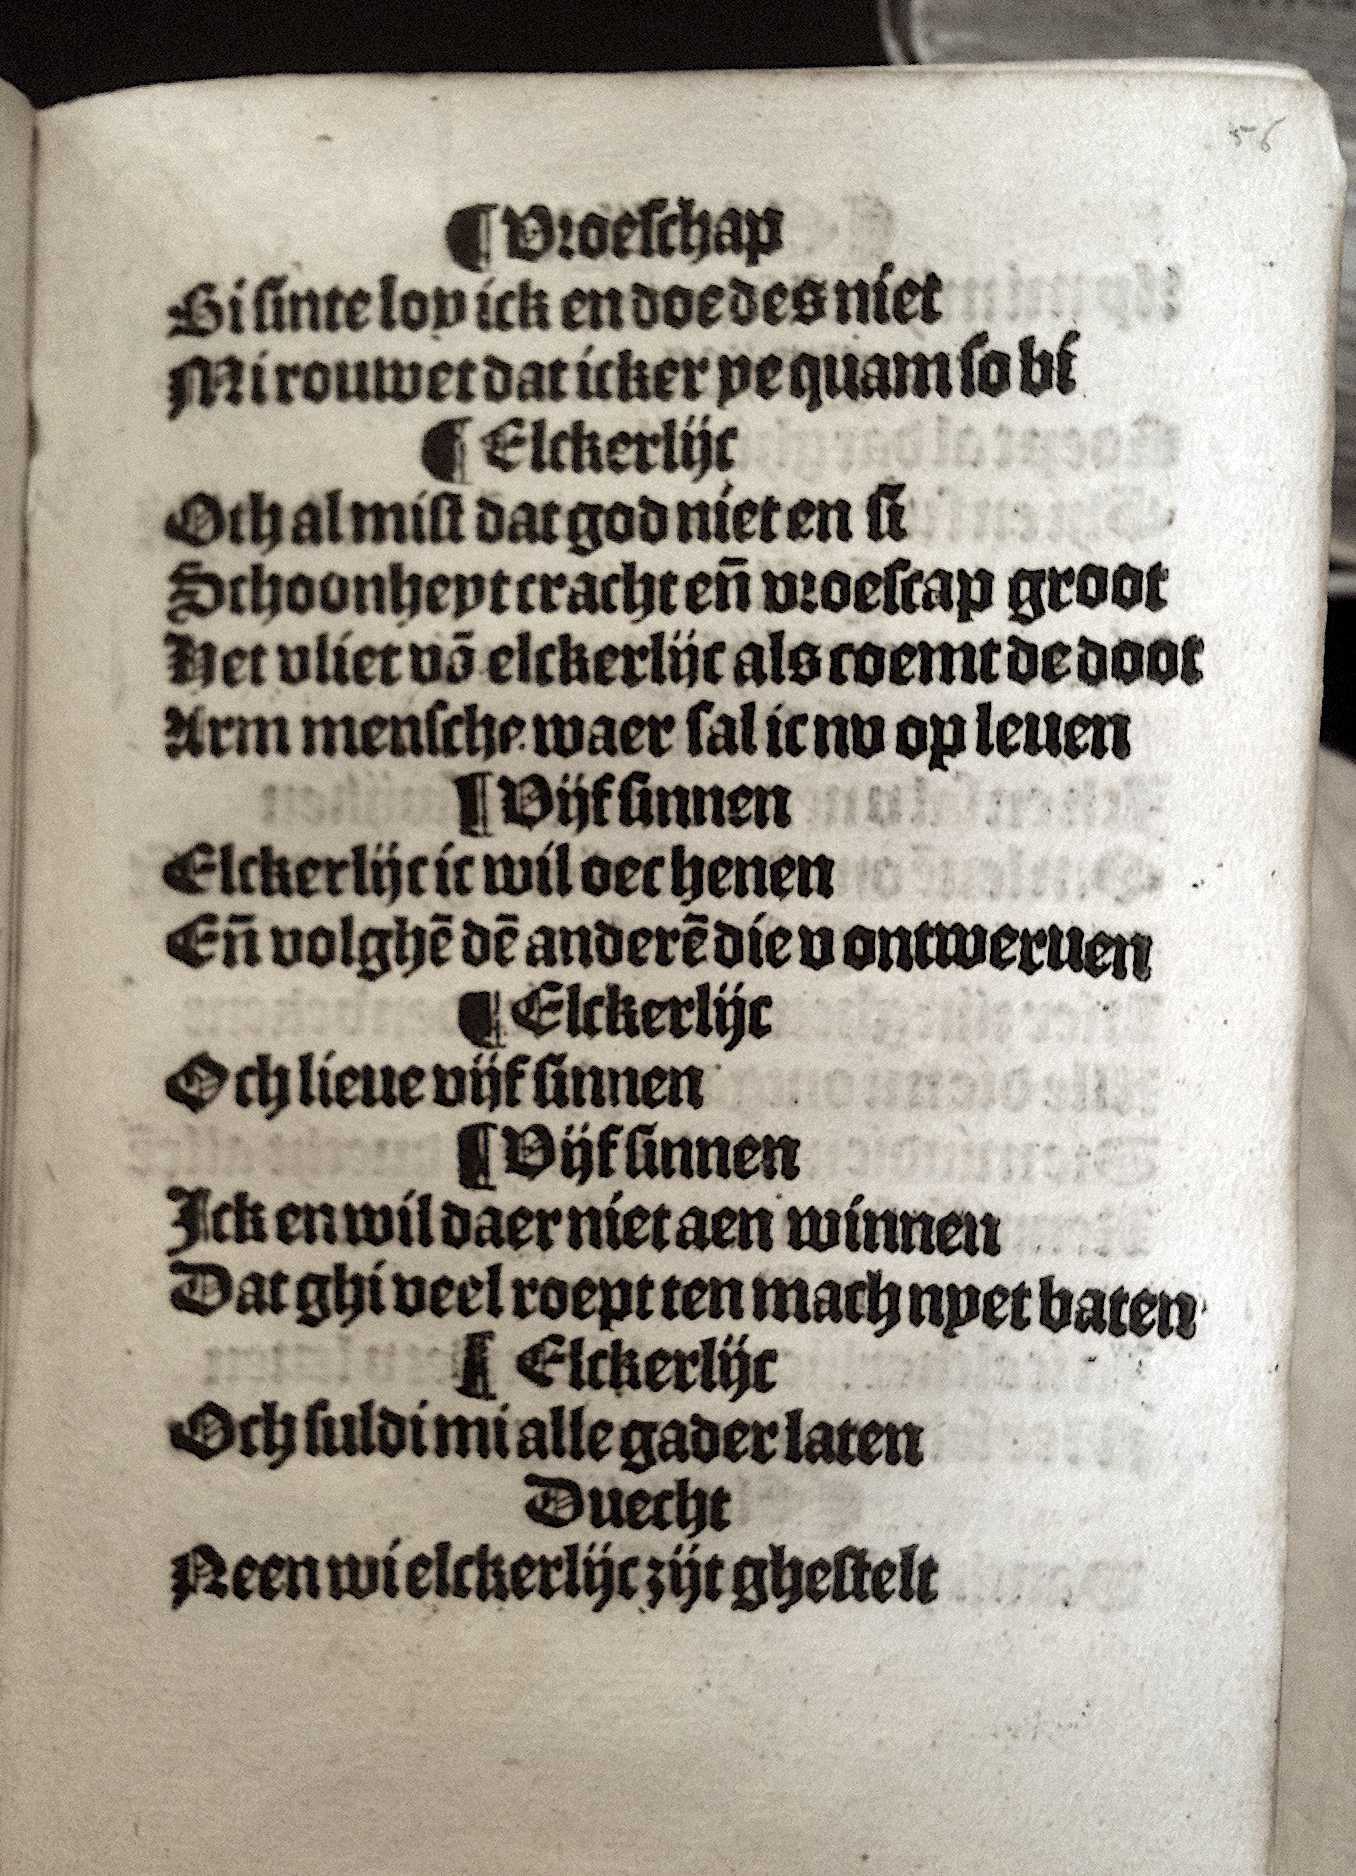 56
¶ Vroeschap
Bi sinte loy ick en doe des niet
Mi rouwet dat icker ye quam so bi
¶ Elckerlijc
Och al mist dat god niet en si
Schoonheyt cracht en̄ vroescap groot
Het vliet vā elckerlijc als coemt de doot
Arm mensche waer sal ic nv op leuen
¶ Vijf sinnen
Elckerlijc ic wil oec henen
En̄ volghē dē anderē die v ontweruen
¶ Elckerlijc
Och lieue vijf sinnen
¶ Vijf sinnen
Ick en wil daer niet aen winnen
Dat ghi veel roept ten mach nyet baten
¶ Elckerlijc
Och suldi mi alle gader laten
Duecht
Neen wi elckerlijc zijt ghestelt